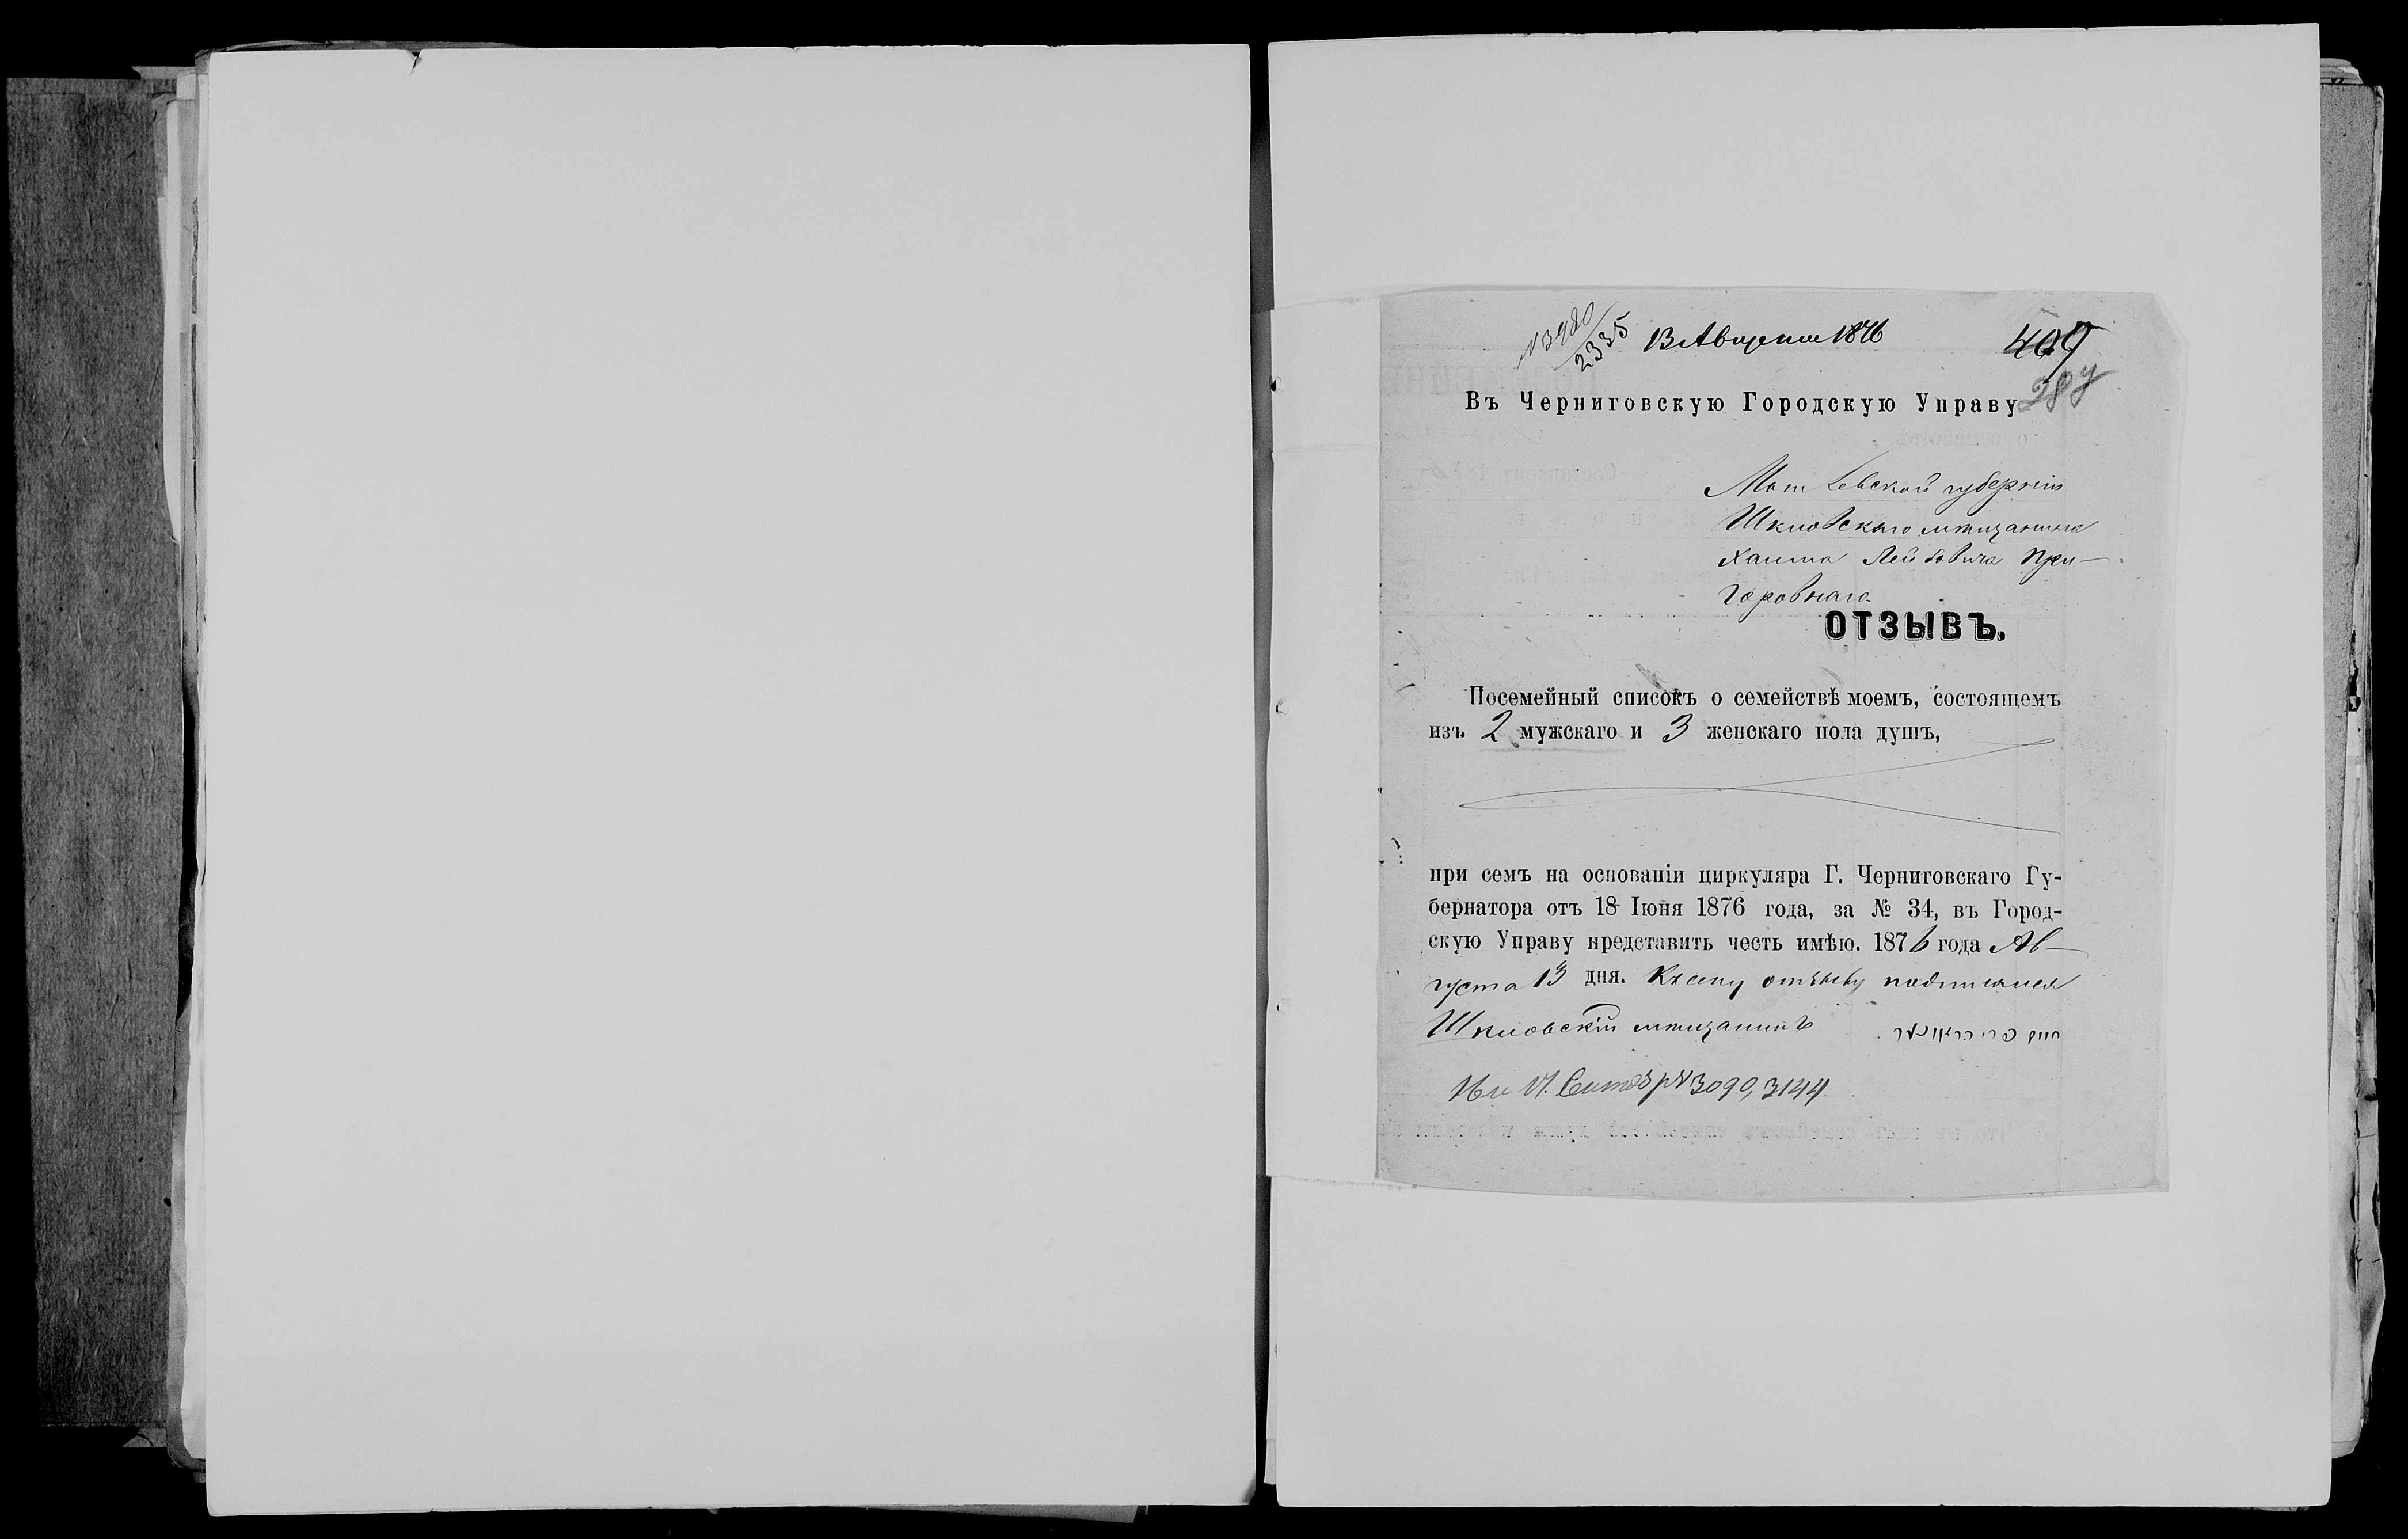 № 3980
2335
13 Августа 1876
409
289
Въ Черниговскую Городскую Управу
Могилевской губерніи
Шкловскаго мѣщанина
Хаима Лейбовича При-
горовнаго
ОТЗЫВЪ.
Посемейный списокъ о семействѣ моемъ, состоящемъ
изъ 2 мужскаго и 3 женскаго пола душъ,
при семъ на основаніи циркуляра Г. Черниговскаго Гу-
бернатора отъ 18 Іюня 1876 года, за № 34, въ Город-
скую Управу представить честь имѣю. 1876 года Ав-
густа 13 дня. Къ сему отзыву подписался
Шкловскій мѣщанинъ
16 и 17. Сентяб р № 3090, 3144